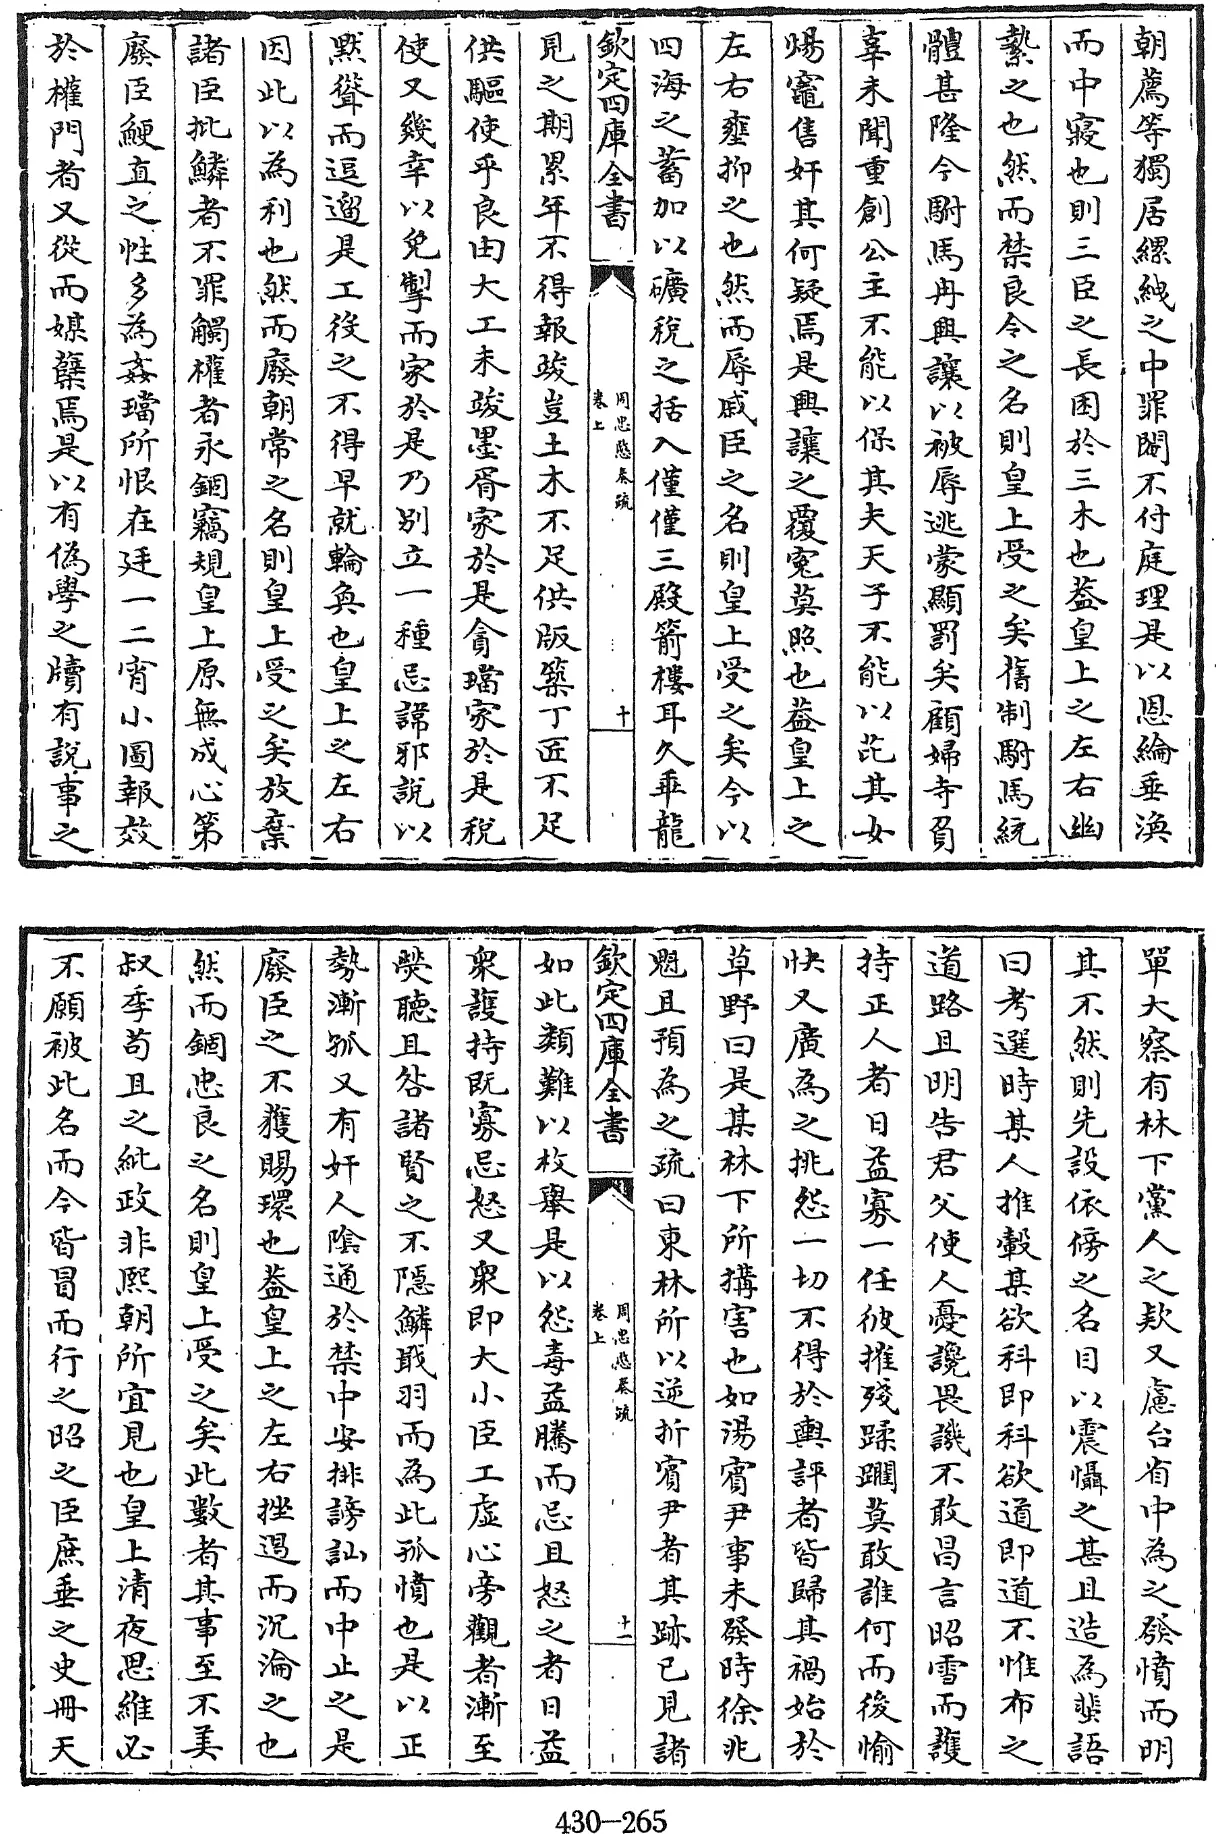 朝薦等獨居縲絏之中罪閣不付庭理是以恩綸垂渙
而中寢也則三臣之長困於三木也蓋皇上之左右幽
縶之也然而禁良令之名則皇上受之矣舊制駙馬統
體甚隆今駙馬冉興讓以被辱逃蒙顯罰矣顧婦寺負
辜未聞重創公主不能以保其夫天子不能以芘其女
煬竈售奸其何疑焉是興讓之覆寃莫照也蓋皇上之
左右壅抑之也然而辱戚臣之名則皇上受之矣今以
四海之蓄加以礦稅之括入僅僅三殿箭樓耳久乖龍
欽定四庫全書
周忠愍奏疏
卷上
十
見之期累年不得報竣豈土木不足供版築丁匠不足
供驅使乎良由大工未竣墨胥家於是貪璫家於是稅
使又幾幸以免掣而家於是乃別立一種忌諱邪說以
默聳而逗遛是工役之不得早就輪奐也皇上之左右
因此以為利也然而廢朝常之名則皇上受之矣放棄
諸臣批鱗者不罪觸權者永錮竊規皇上原無成心第
廢臣鯁直之性多為姦璫所恨在廷一二宵小圖報效
於權門者又從而媒蘖焉是以有偽學之牘有說事之
單大察有林下黨人之款又慮台省中為之發憤而明
其不然則先設依傍之名目以震懾之甚且造為蜚語
曰考選時某人推轂某欲科即科欲道即道不惟布之
道路且明告君父使人憂讒畏譏不敢昌言昭雪而護
持正人者日益寡一任彼摧殘蹂躪莫敢誰何而後愉
快又廣為之挑怨一切不得於輿評者皆歸其禍始於
草野曰是某林下所搆害也如湯賓尹事未發時徐兆
魁且預為之疏曰東林所以逆折賓尹者其跡已見諸
欽定四庫全書
周忠愍奏疏
卷上
十一
如此類難以枚舉是以怨毒益騰而忌且怒之者日益
衆護持既寡忌怒又衆即大小臣工虛心旁觀者漸至
熒聽且咎諸賢之不隱鱗戢羽而為此孤憤也是以正
勢漸孤又有奸人陰通於禁中安排謗訕而中止之是
廢臣之不獲賜環也蓋皇上之左右挫遏而沉淪之也
然而錮忠良之名則皇上受之矣此數者其事至不美
叔季苟且之紕政非熙朝所宜見也皇上清夜思維必
不願被此名而今皆冒而行之昭之臣庶垂之史冊天
430-265